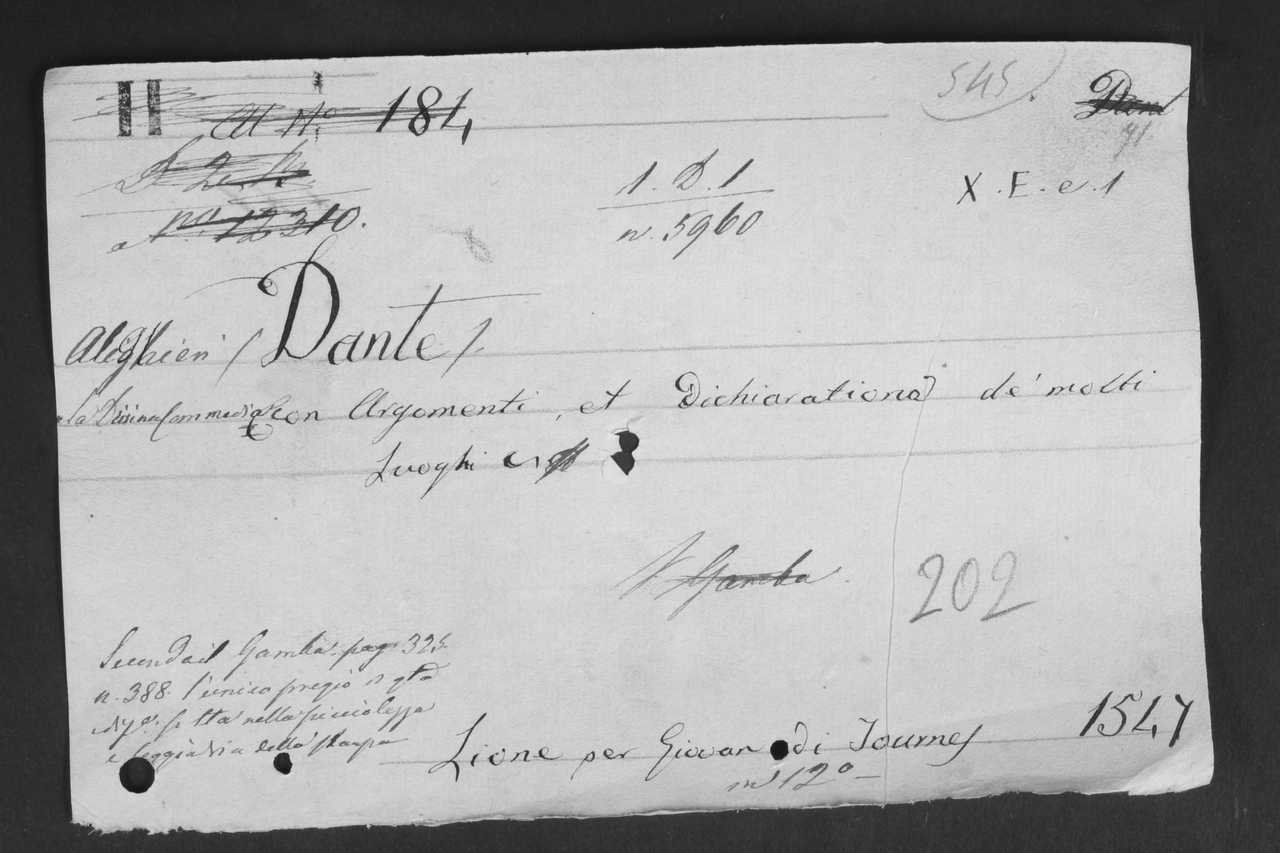 II
184
545.
41
N.º 12310.
1. D. 1
n. 5960
X. F. e. 1
Alighieri (Dante)
La Divina Commedia con Argomenti, et Dichiaratione de' molti
Luoghi
V. Gamba.
202
Secondo il Gamba pag. 325
n. 388. l'unico pregio di qta
sta nella piccolezza
e leggiadria della stampa
Lione per Giovan di Tournes 1547
in 12º